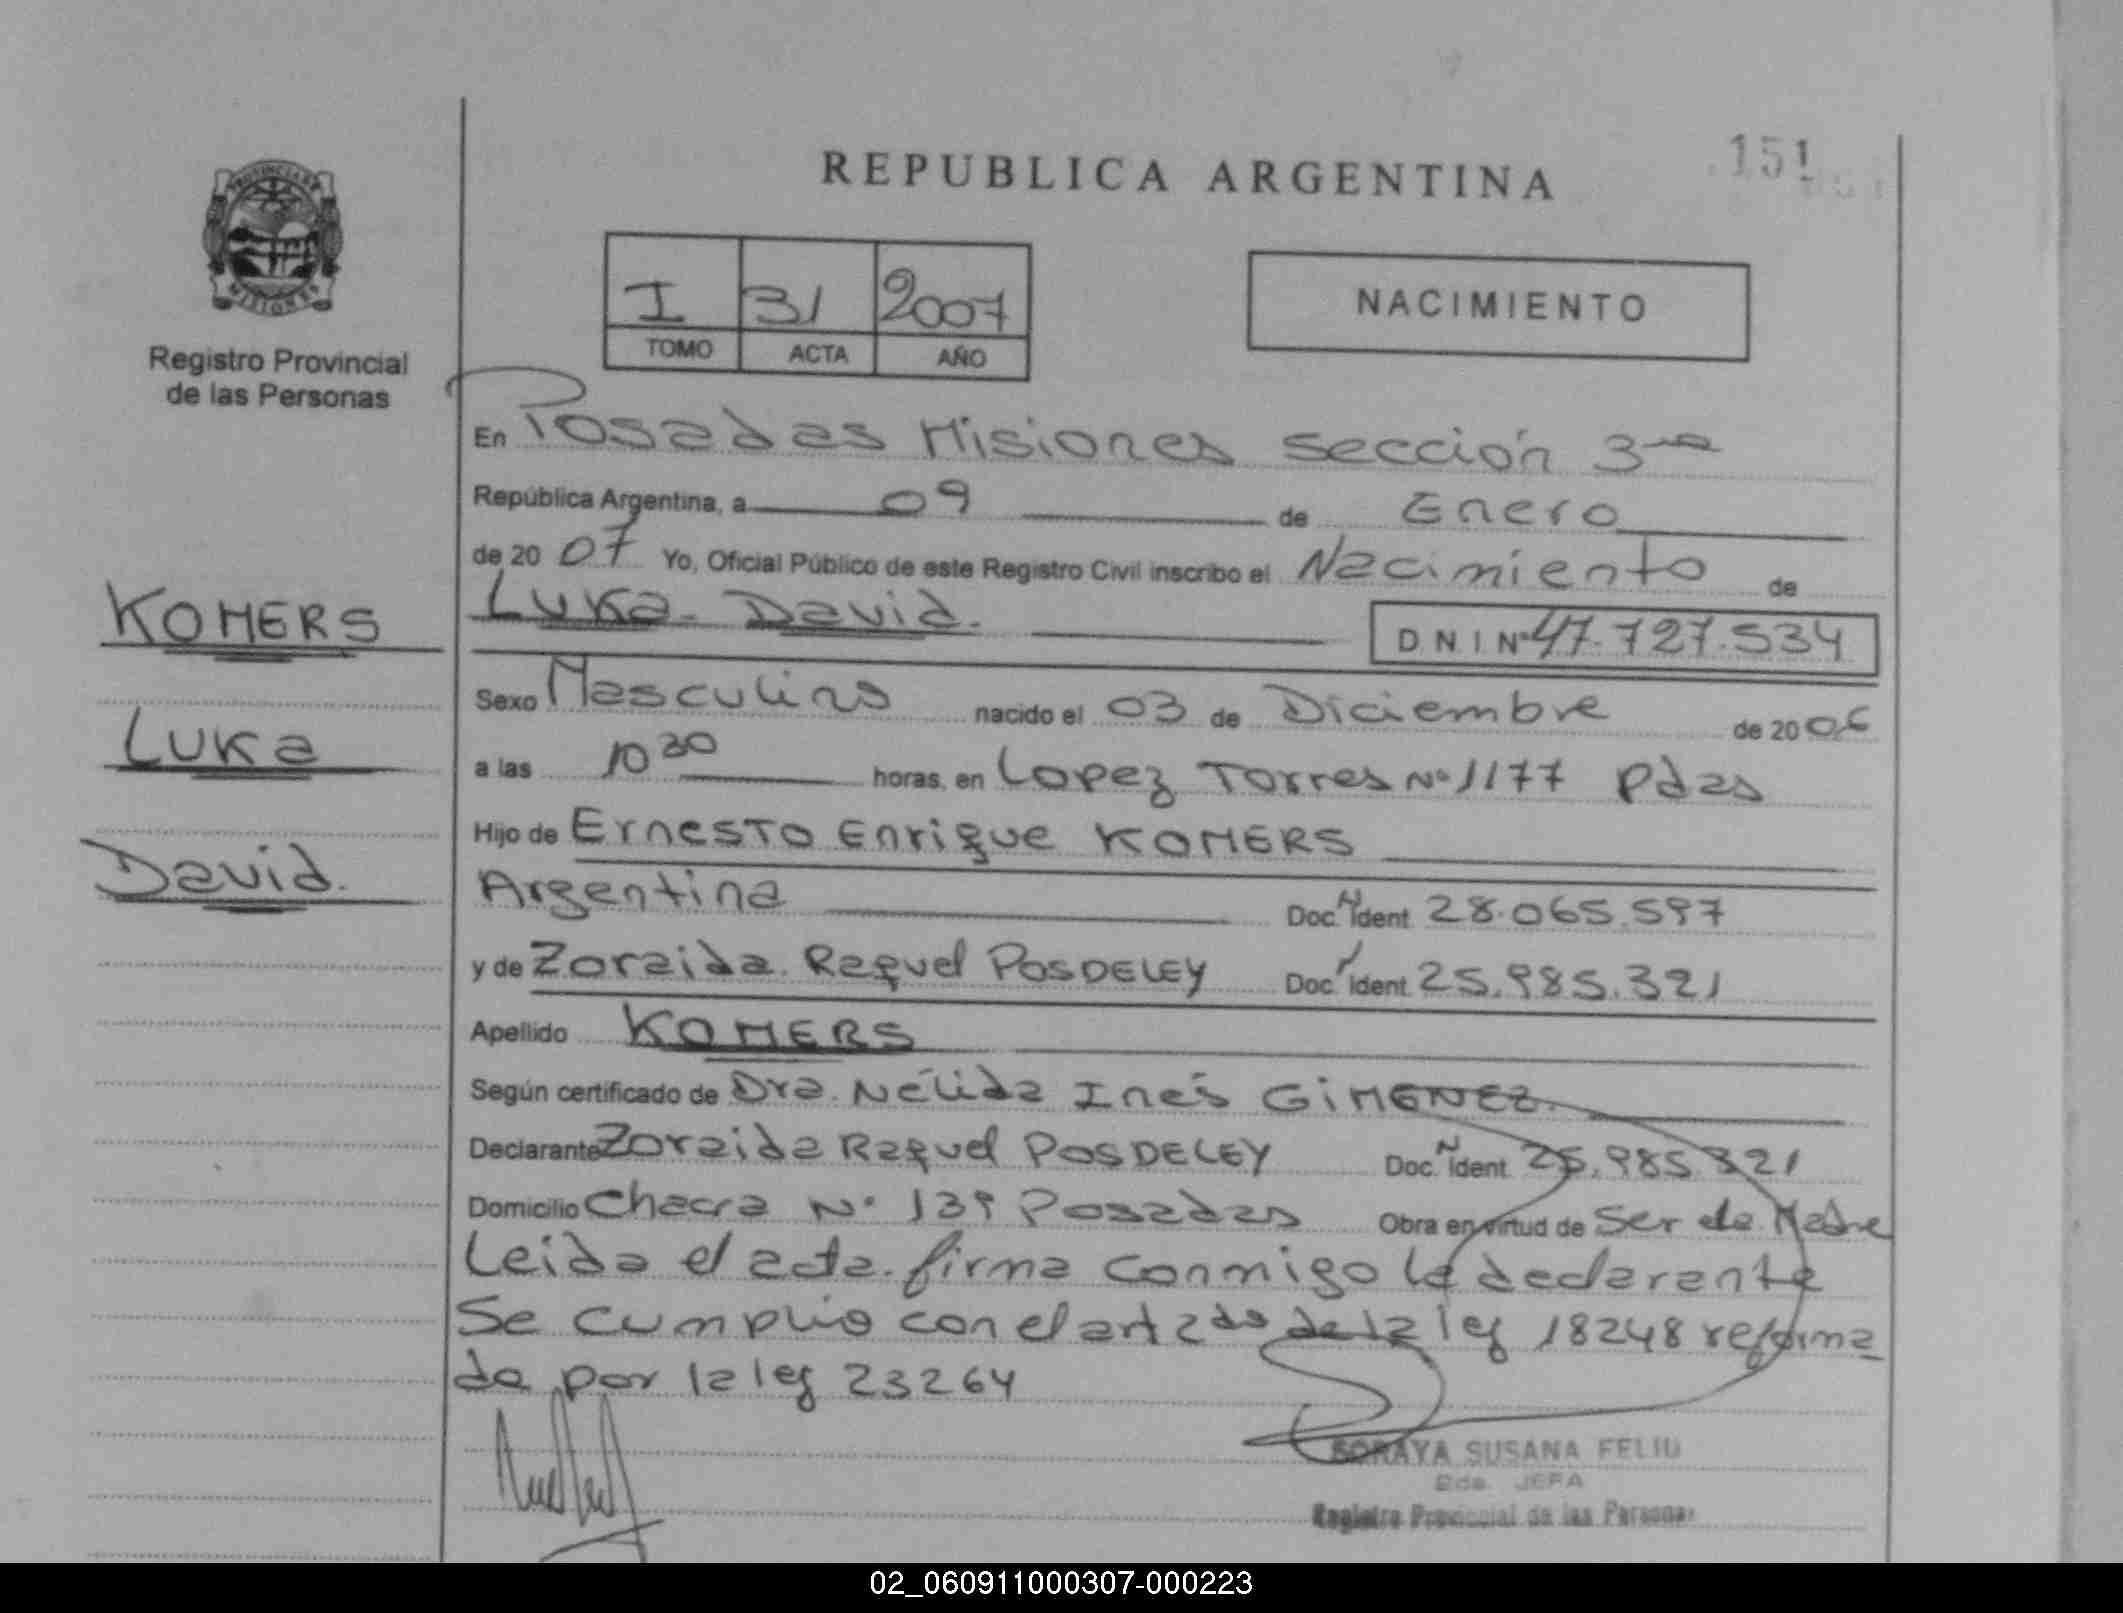 REPUBLICA ARGENTINA
151
PROVINCIA DE
MISIONES
Registro Provincial
de las Personas
I 31 2007
TOMO ACTA AÑO
NACIMIENTO
En Posadas Misiones sección 3ra
República Argentina, a 09 de Enero
de 2007 Yo, Oficial Público de este Registro Civil inscribo el Nacimiento de
Luka David.
D N I Nº 47.727.534
KOMERS
Luka
David.
Sexo Masculino nacido el 03 de Diciembre de 2006
a las 10 30 horas, en Lopez Torres Nº 1177 Pdas
Hijo de Ernesto Enrique KOMERS
Argentina Doc. N Ident 28.065.597
y de Zoraida Raquel POSDELEY Doc. Ident. 25.985.321
Apellido KOMERS
Según certificado de Dra. Nélida Inés GIMENEZ.
Declarante Zoraida Raquel POSDELEY Doc. N Ident. 25.985.321
Domicilio Chacra Nº 139 Posadas Obra en virtud de ser la Madre
Leida el acta firma conmigo la declarante
Se cumplio con el art 2do de la ley 18248 reforma
da por la ley 23264
SORAYA SUSANA FELIU
JEFA
Registro Provincial de las Personas
02_060911000307-000223